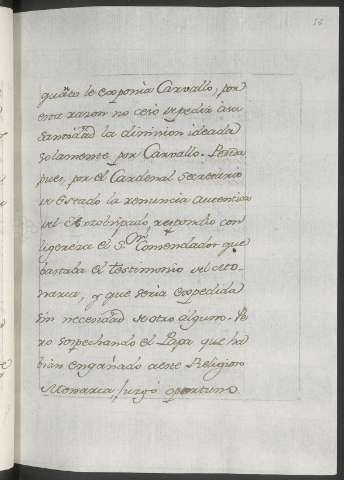 quāto le exponia Carvallo, por
esta razon no cesó de pedir à su
santidad la dimision ideada
solamente por Carvallo. Pedida
pues por el Cardenal Secretario
de Estado la renuncia autentica
del Arzobispado respondio con
ligereza el Sr. Comendador que
bastaba el testimonio del Mo-
narca, y que seria expedida
sin necesidad de otro alguno. Pe
ro sospechando el Papa que ha
bian engañado a este Religioso
Monarca, juzgó oportuno